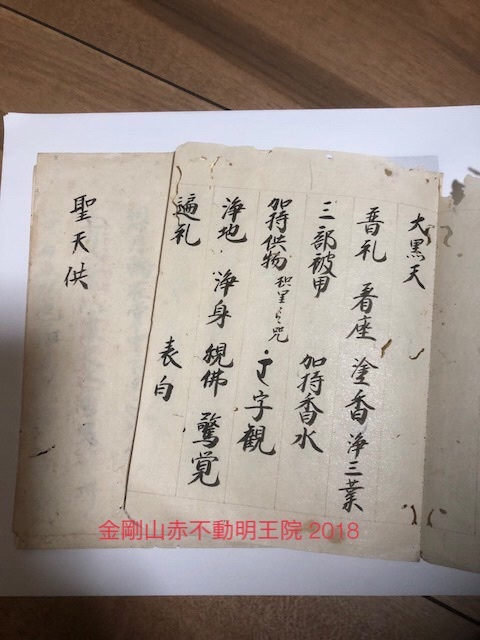 大黒天
普礼 着座 塗香 浄三業
三部被甲 加持香水
加持供物 枳里々咒 字観
浄地 浄身 観佛 驚覚
遍礼 表白
聖天供
金剛山赤不動明王院 2018